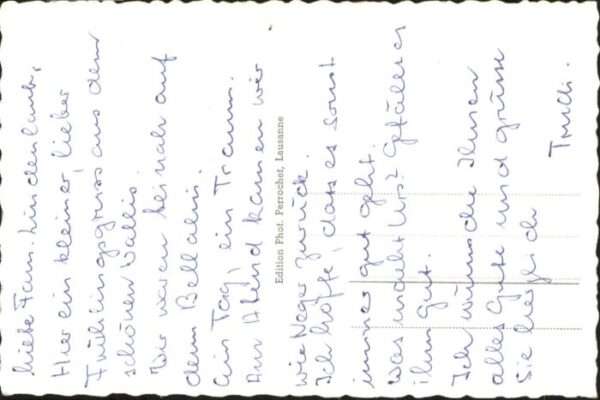 Liebe Fam. Lindenlaub,
Hier ein kleiner, lieber
Frühlingsgruss aus dem
schönen Wallis.
Wir waren beinah auf
dem Bellalui.
Ein Tag, ein Traum.
Am Abend kamen wir
Edition Phot. Perrochet, Lausanne
wie Neger zurück.
Ich hoffe, dass es sonst
immer gut geht.
Was macht Urs? Gefällt es
ihm gut.
Ich wünsche Ihnen
alles Gute und grüsse
Sie herzlich
Trudi.